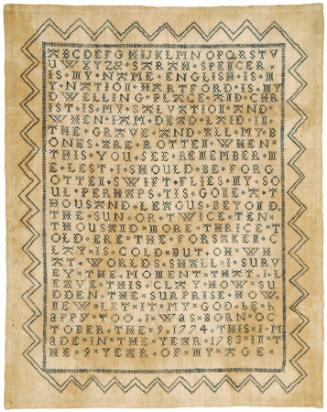 ABCDEFGHIJKLMNOPQRSTV
UWXYZ& SARAH SPENCER
IS MY NAME ENGLISH IS M
Y NATION HARTFORD IS MY
DWELLING PLACE AND CHR
IST IS MY SALVATION AND
WHEN I AM DEAD AND IN
THE GRAVE AND ALL MY B
ONES ARE ROTTEN WHEN
THIS YOU SEE REMEMBER M
E LEST I SHOULD BE FORG
OTTEN SWIFT FLIES MY SO
UL PERHAPS TS GONE A T
HOUSAND LEAGUS BEYOND
THE SUN OR TWICE TEN
THOUSAND MORE THRICE T
OLD ERE THE FORSAKEN C
LAY IS COLD BUT O WH
AT WORLDS SHALL I SURV
EY THE MOMENT THAT I L
EAVE THIS CLAY SU
DDEN THE SURPRISE HOW
NEW LET IT MY GOD BE h
APPY TOO I WAS BORN OC
TOBER 9 1774 THIS I M
ADE IN THE YEAR 1783 IN T
HE 9 YEAR OF MY AGE